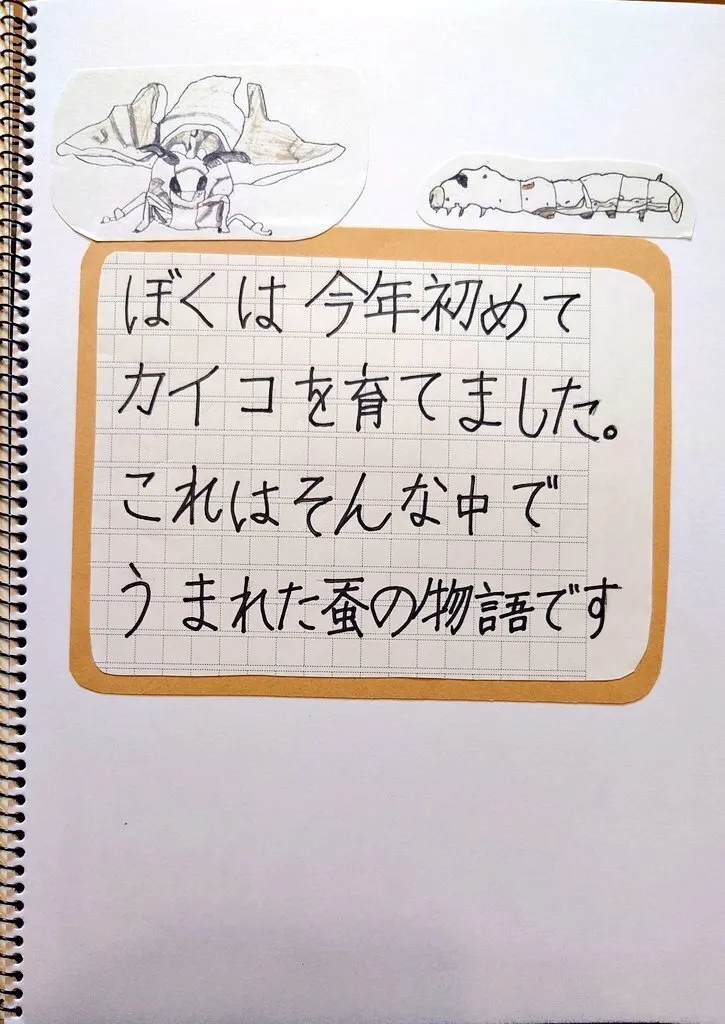 ぼくは今年初めて
カイコを育てました。
これはそんな中で
うまれた蚕の物語です